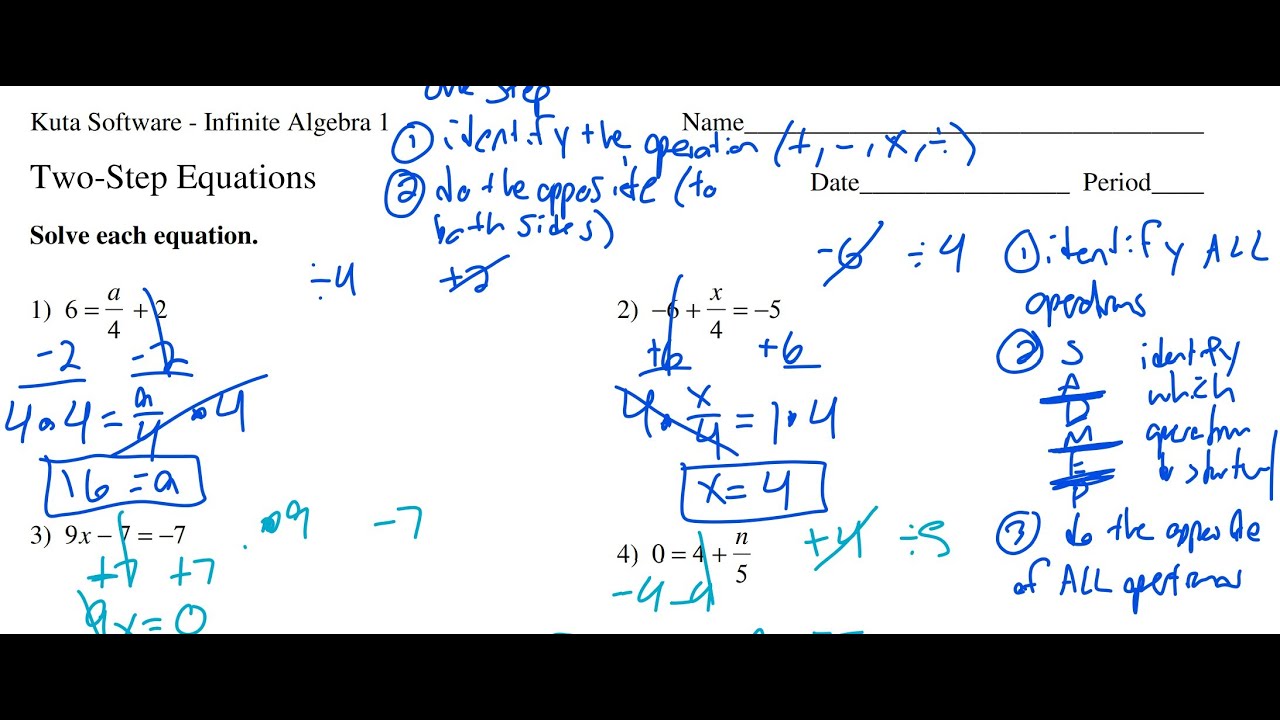 one step
Kuta Software - Infinite Algebra 1
Name
① identify the operation (+, -, x, ÷)
Two-Step Equations
② do the opposite (to
both sides)
Date Period
Solve each equation.
÷4 +2
-6 ÷4
① identify ALL
operations
1) 6 = a/4 + 2
-2 -2
4 • 4 = a/4 • 4
16 = a
2) −6 + x/4 = −5
+6 +6
4 • x/4 = 1 • 4
x = 4
② S identify
A which
D operation
M
E
P
③ do the opposite
of ALL operations
3) 9x − 7 = −7
•9 -7
+7 +7
9x = 0
4) 0 = 4 + n/5
+4 ÷5
-4 -4